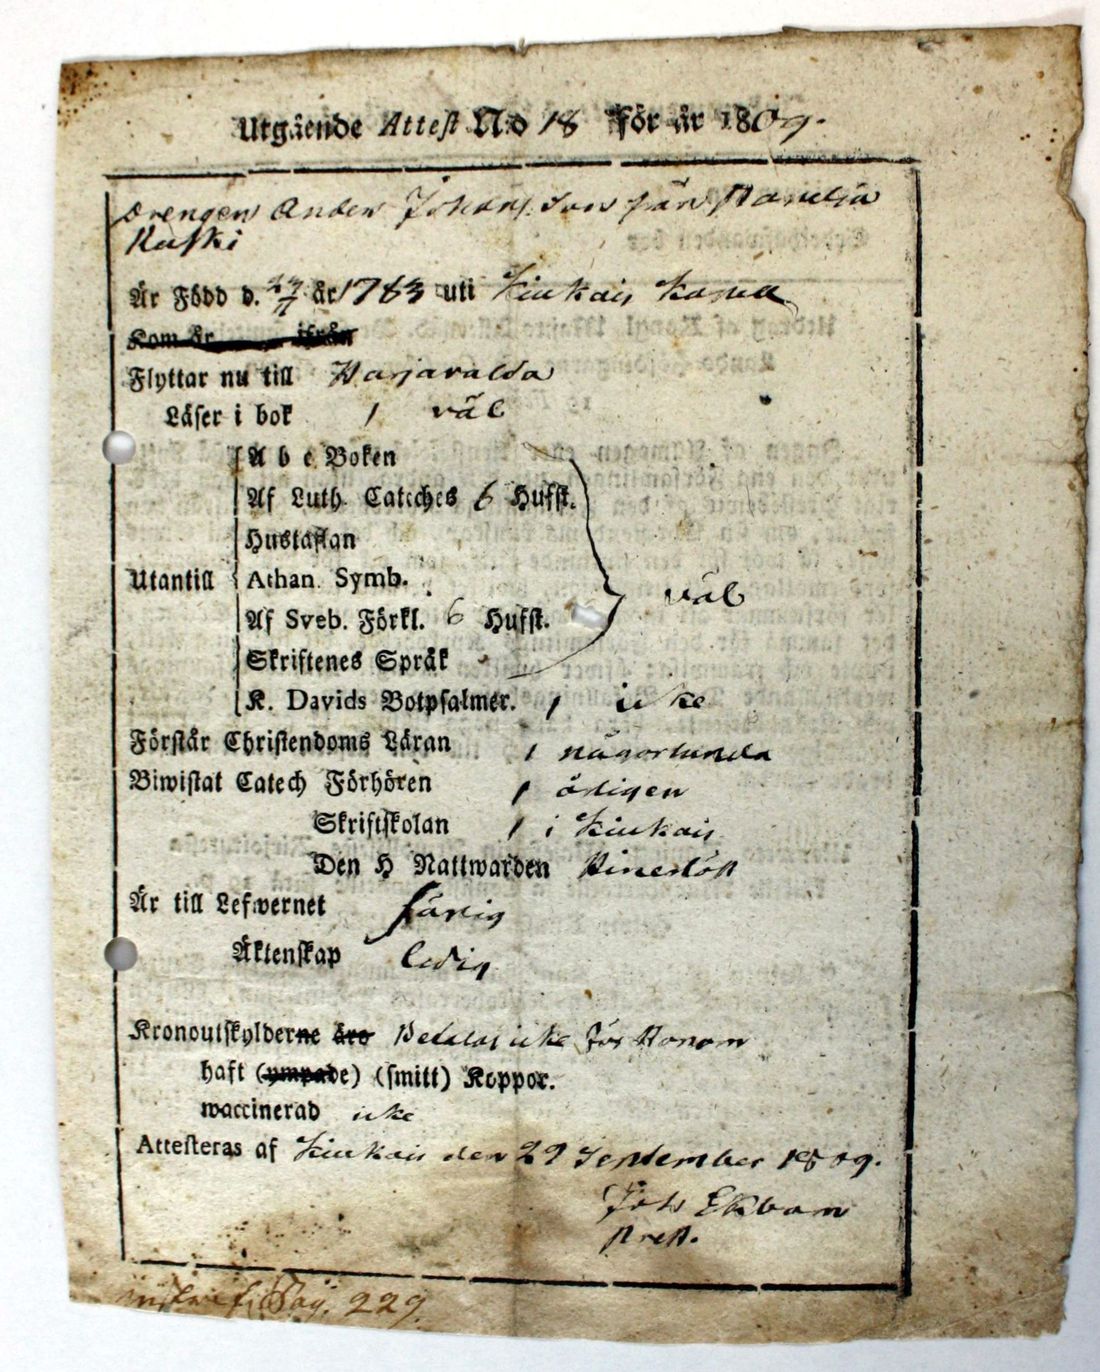 Utgäende Attest N:o 18 För år 1809.
Drengen Anders Johansson från Panelia
Kuski
Är Född d. år 1783 uti Kiukais Kapell
Kom år ifrån
Flyttar nu till Harjavalda
Läser i bok / väl
A b c Boken
Af Luth. Catéches 6 Hufst.
Hustaflan
Utantill Athan. Symb. väl
Af Sveb. Förkl. 6 Hufst.
Skriftenes Språk
K. Davids Botpsalmer. / icke
Förstår Christendoms Läran / någorlunda
Biwistat Catech Förhören / årligen
Skriftskolan / i Kiukais
Den H Nattwarden
Är till Lefwernet färig
Äktenskap ledig
Kronoutskylderne äro Betalas icke för Honom
haft (ympade) (smitt) Koppor.
waccinerad icke
Attesteras af Kiukais den 29 September 1809.
Joh Ekbom
Prest.
Pag. 229.